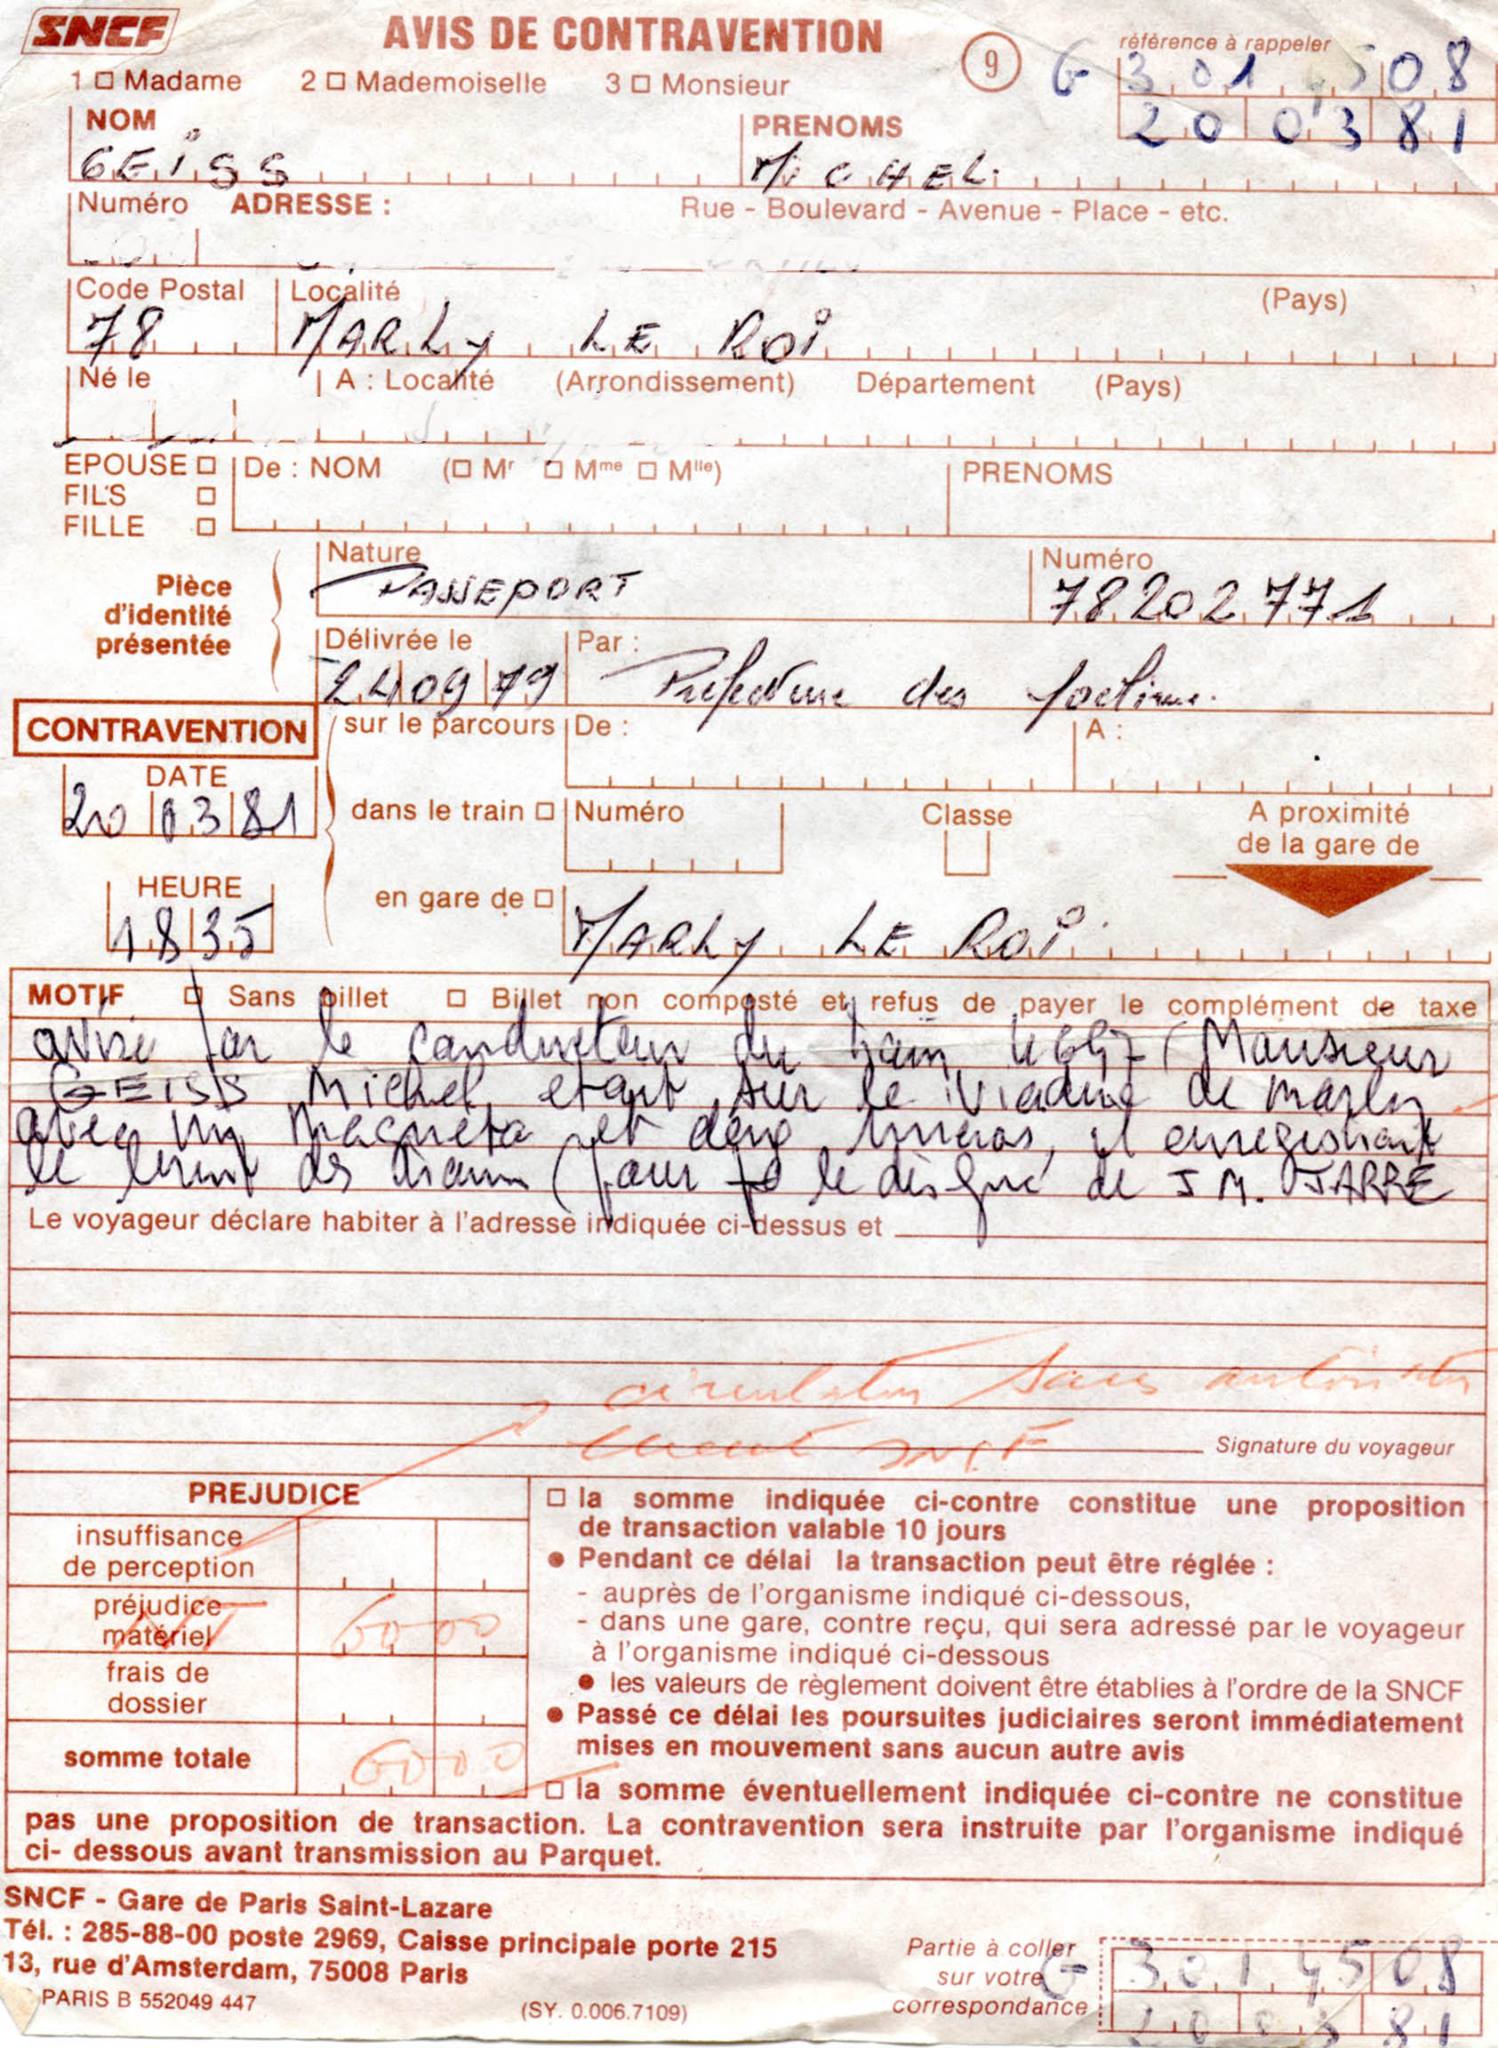 SNCF
AVIS DE CONTRAVENTION
9
référence à rappeler
G 3014508
200381
1 □ Madame 2 □ Mademoiselle 3 □ Monsieur
NOM PRENOMS
GEISS MICHEL
Numéro ADRESSE : Rue - Boulevard - Avenue - Place - etc.
Code Postal Localité (Pays)
78 MARLY LE ROI
Né le A : Localité (Arrondissement) Département (Pays)
EPOUSE □ De : NOM (□ Mr □ Mme □ Mlle) PRENOMS
FILS □
FILLE □
Pièce d'identité présentée
Nature Numéro
PASSEPORT 78202771
Délivrée le Par :
240979 Prefecture des Yvelines.
CONTRAVENTION sur le parcours De : A :
DATE
20 03 81
dans le train □ Numéro Classe A proximité
de la gare de
HEURE
1835
en gare de □
MARLY LE ROI
MOTIF □ Sans billet □ Billet non composté et refus de payer le complément de taxe
avisé par le conducteur du train Monsieur
GEISS Michel etant sur le Viaduc de Marly
avec un magneto et deux micros, il enregistrait
le bruit des trains (pour le disque de J M. JARRE
Le voyageur déclare habiter à l'adresse indiquée ci-dessus et
circulation sans
SNCF
Signature du voyageur
PREJUDICE
insuffisance
de perception
préjudice
matériel 6000
frais de
dossier
somme totale 6000
□ la somme indiquée ci-contre constitue une proposition
de transaction valable 10 jours
● Pendant ce délai la transaction peut être réglée :
- auprès de l'organisme indiqué ci-dessous,
- dans une gare, contre reçu, qui sera adressé par le voyageur
à l'organisme indiqué ci-dessous
● les valeurs de règlement doivent être établies à l'ordre de la SNCF
● Passé ce délai les poursuites judiciaires seront immédiatement
mises en mouvement sans aucun autre avis
□ la somme éventuellement indiquée ci-contre ne constitue
pas une proposition de transaction. La contravention sera instruite par l'organisme indiqué
ci- dessous avant transmission au Parquet.
SNCF - Gare de Paris Saint-Lazare
Tél. : 285-88-00 poste 2969, Caisse principale porte 215
13, rue d'Amsterdam, 75008 Paris
PARIS B 552049 447 (SY. 0.006.7109)
Partie à coller
sur votre
correspondance
G 3014508
200381